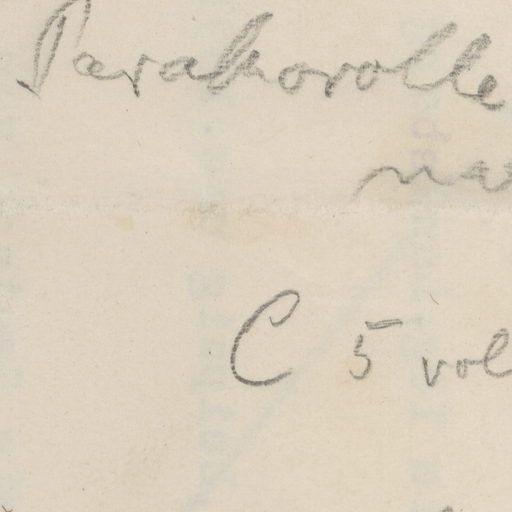 Parakorolle
na
C 5 vol